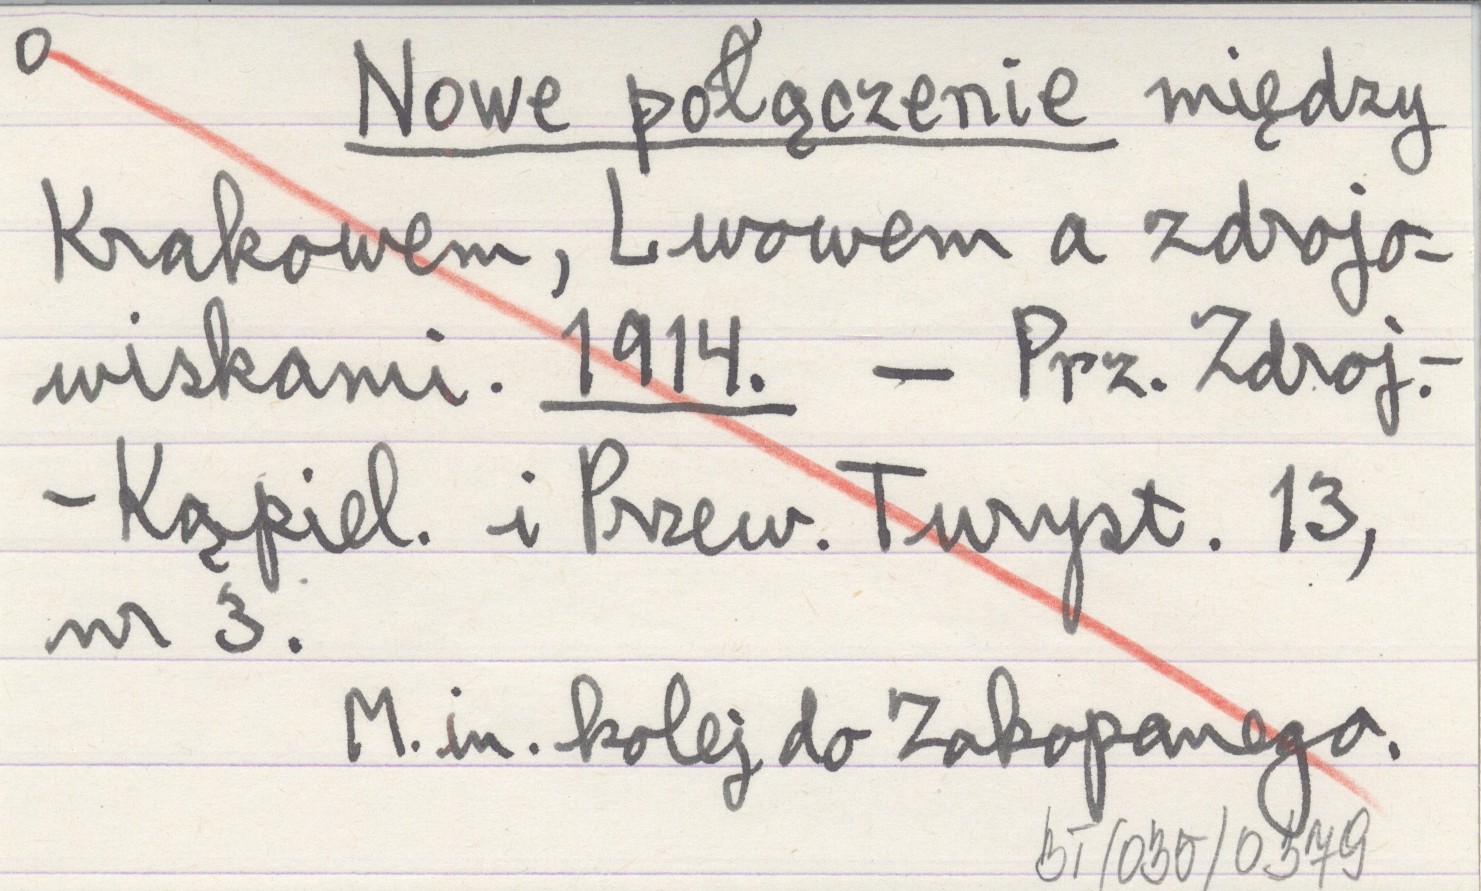 O Nowe połączenie między
Krakowem, Lwowem a zdrojo-
wiskami. 1914. — Prz. Zdroj.-
-Kąpiel. i Przew. Turyst. 13,
nr 3.
M. in. kolej do Zakopanego.
bT/030/0379